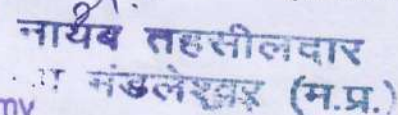 नायब तहसीलदार
मंडलेश्वर (म.प्र.)
my